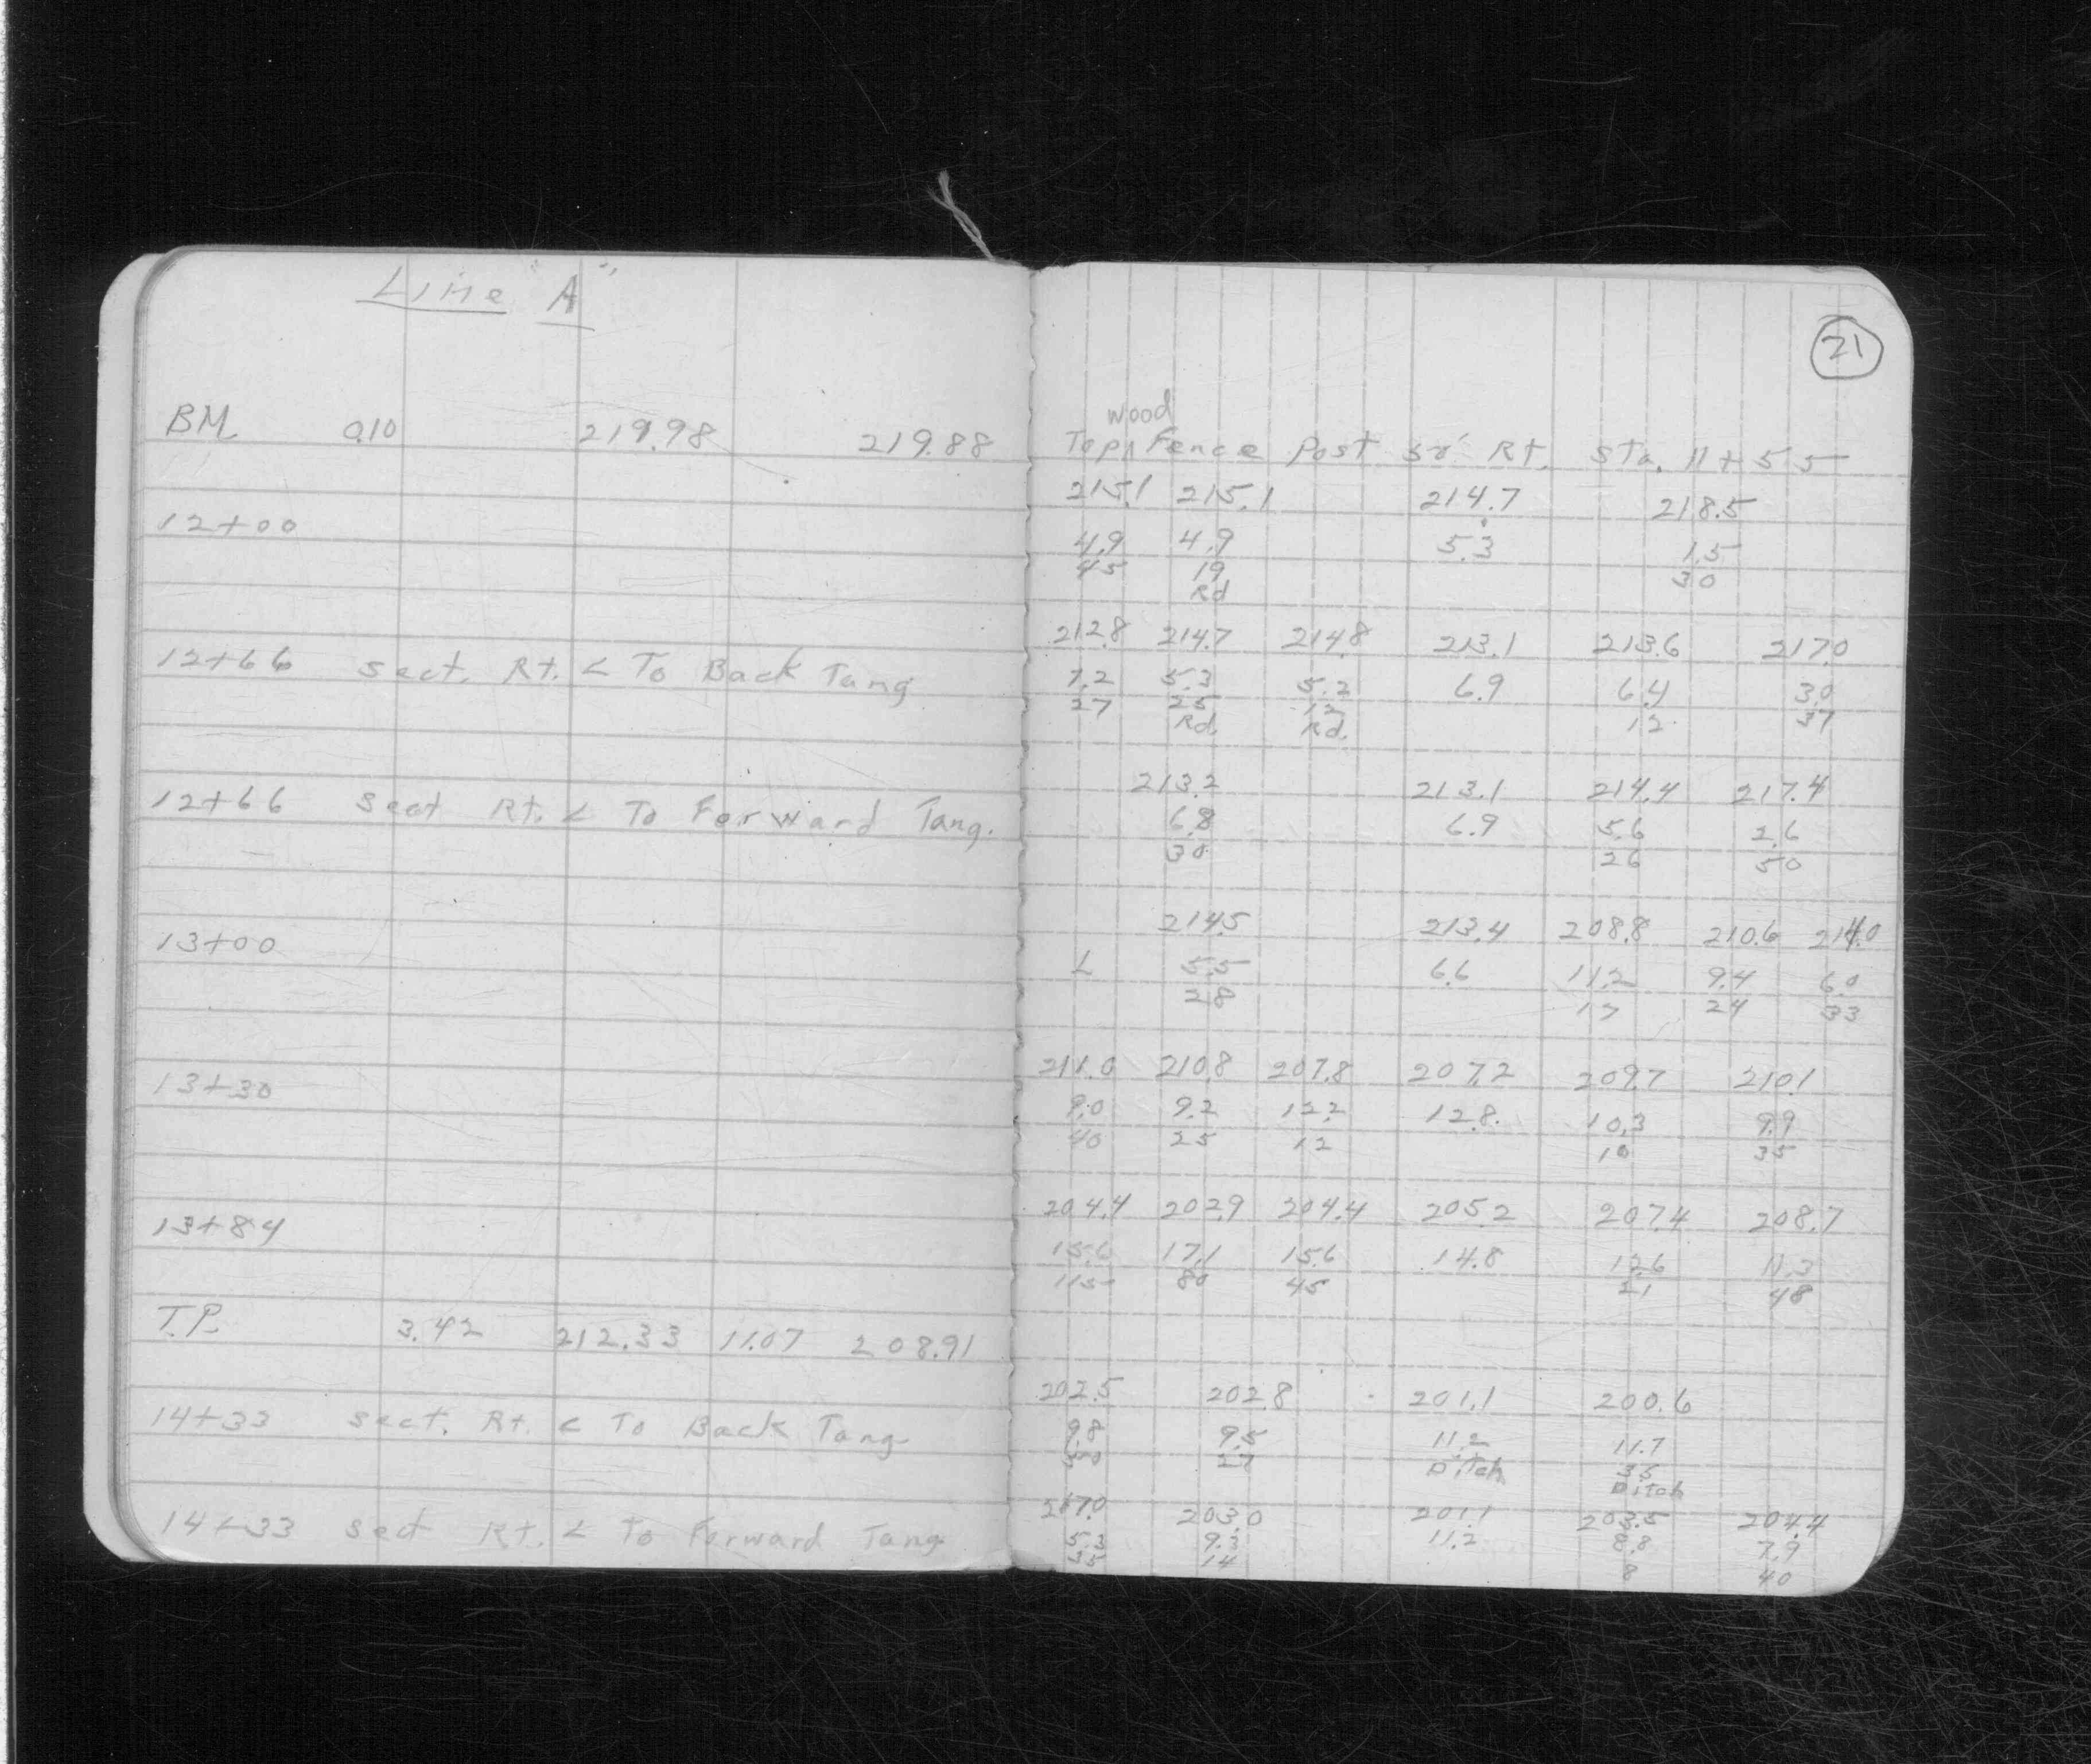 Line "A"
21
BM 0.10 219.98 219.88
wood
Top Fence Post 50' Rt. Sta. 11+55
215.1 215.1 214.7 218.5
12+00
4.9 4.9 5.3 1.5
45 19 30
Rd
212.8 214.7 214.8 213.1 213.6 217.0
12+66 sect. Rt. < To Back Tang
7.2 5.3 5.2 6.9 6.4 3.0
27 25 12 12 37
Rd. Rd.
213.2 213.1 214.4 217.4
12+66 sect Rt. < To Forward Tang.
6.8 6.9 5.6 2.6
30 26 50
214.5 213.4 208.8 210.6 214.0
13+00
L 5.5 6.6 11.2 9.4 6.0
28 17 24 33
211.0 210.8 207.8 207.2 209.7 210.1
13+30
9.0 9.2 12.2 12.8 10.3 9.9
40 25 12 10 35
204.4 202.9 204.4 205.2 207.4 208.7
13+84
15.6 17.1 15.6 14.8 12.6 11.3
115 80 45 21 48
T.P. 3.42 212.33 11.07 208.91
202.5 202.8 201.1 200.6
14+33 sect. Rt. < To Back Tang
9.8 9.5 11.2 11.7
50 27 Ditch 35
Ditch
207.0 203.0 201.1 203.5 204.4
14+33 sect Rt. < To Forward Tang
5.3 9.3 11.2 8.8 7.9
35 14 8 40